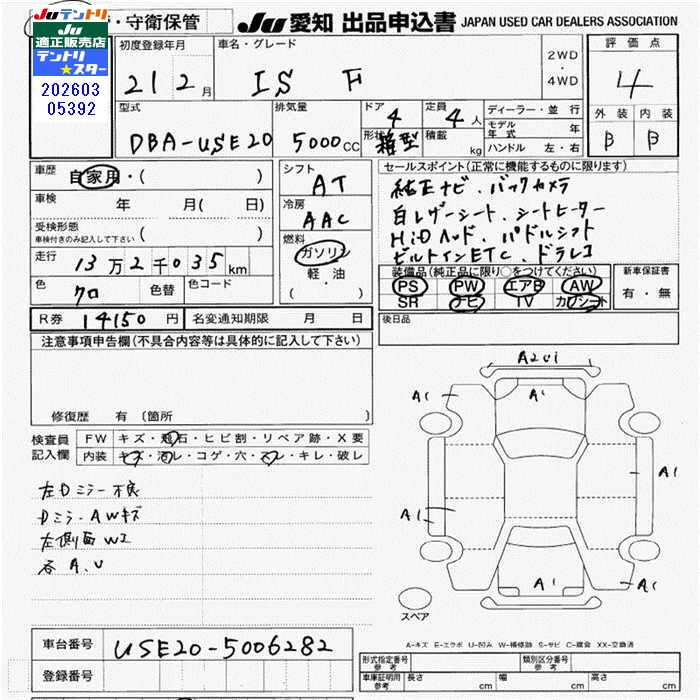 JUテントリ ・守衛保管 JU 愛知 出品申込書 JAPAN USED CAR DEALERS ASSOCIATION
JU
適正販売店
テントリ
★スター
202603
05392
初度登録年月 車名・グレード 2WD ・ 4WD 評価点
21 2月 IS F 4
型式 排気量 ドア 4 定員 4人 ディーラー・並行 外装 内装
DBA-USE20 5000cc 形状 箱型 積載 kg モデル年式 年 B B
ハンドル 左・右
車歴 自家用・( ) シフト AT セールスポイント(正常に機能するものに限ります)
車検 年 月( 日) 冷房 AAC 純正ナビ、バックカメラ
白レザーシート、シートヒーター
受検形態 車検付きのみ記入して下さい ( ) 燃料 HiDヘッド、パドルシフト
走行 13万2千035km ガソリン ビルトインETC、ドラレコ
軽・油 装備品(純正品に限り○をつけてください) 新車保証書
色 クロ 色替 色コード ( ) PS PW エアB AW 有・無
SR ナビ TV カワシート
R券 14150円 名変通知期限 月 日 後日品
注意事項申告欄(不具合内容等は具体的に記入して下さい)
修復歴 有 〔箇所 〕
検査員 FW キズ・飛石・ヒビ割・リペア跡・X要
記入欄 内装 キズ・汚レ・コゲ・穴・スレ・キレ・破レ
左Dミラー不良
Dミラ、AWキズ
左側面W2
各A、U
A2U1
A1
A1
A1
A1
A1
A1
A1
スペア
A-キズ E-エクボ U-凹み W-補修跡 S-サビ C-腐食 XX-交換済
車台番号 USE20-5006282
登録番号
形式指定番号 参考 類別区分番号 参考
車庫証明用 参考 長さ cm 幅 cm 高さ cm